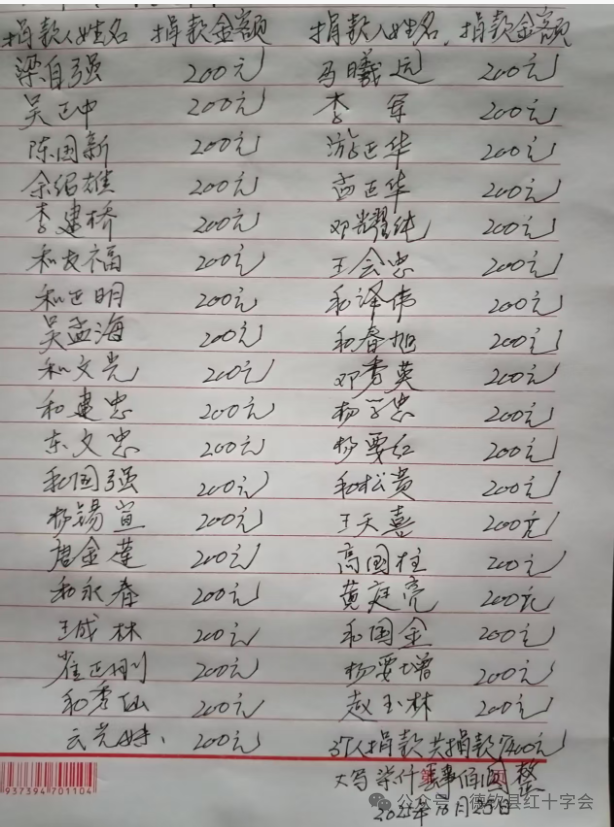 捐款人姓名 捐款金额 捐款人姓名 捐款金额
梁自强 200元 马曦远 200元
吴正中 200元 李军 200元
陈国新 200元 游正华 200元
余绍雄 200元 孟正华 200元
李建桥 200元 邓耀纯 200元
和友福 200元 王会忠 200元
和正明 200元 和泽伟 200元
吴孟海 200元 和春旭 200元
和文光 200元 邓秀英 200元
和建忠 200元 杨学忠 200元
东文忠 200元 杨要红 200元
和国强 200元 和松贵 200元
杨锡宣 200元 王天喜 200元
唐金莲 200元 高国柱 200元
和永春 200元 黄庭亮 200元
王成林 200元 和国金 200元
崔正刚 200元 杨要增 200元
和秀仙 200元 赵玉林 200元
云党妹 200元 37人捐款共捐款7400元
大写柒仟肆佰圆整
937394701104 月25日
公众号 德钦县红十字会